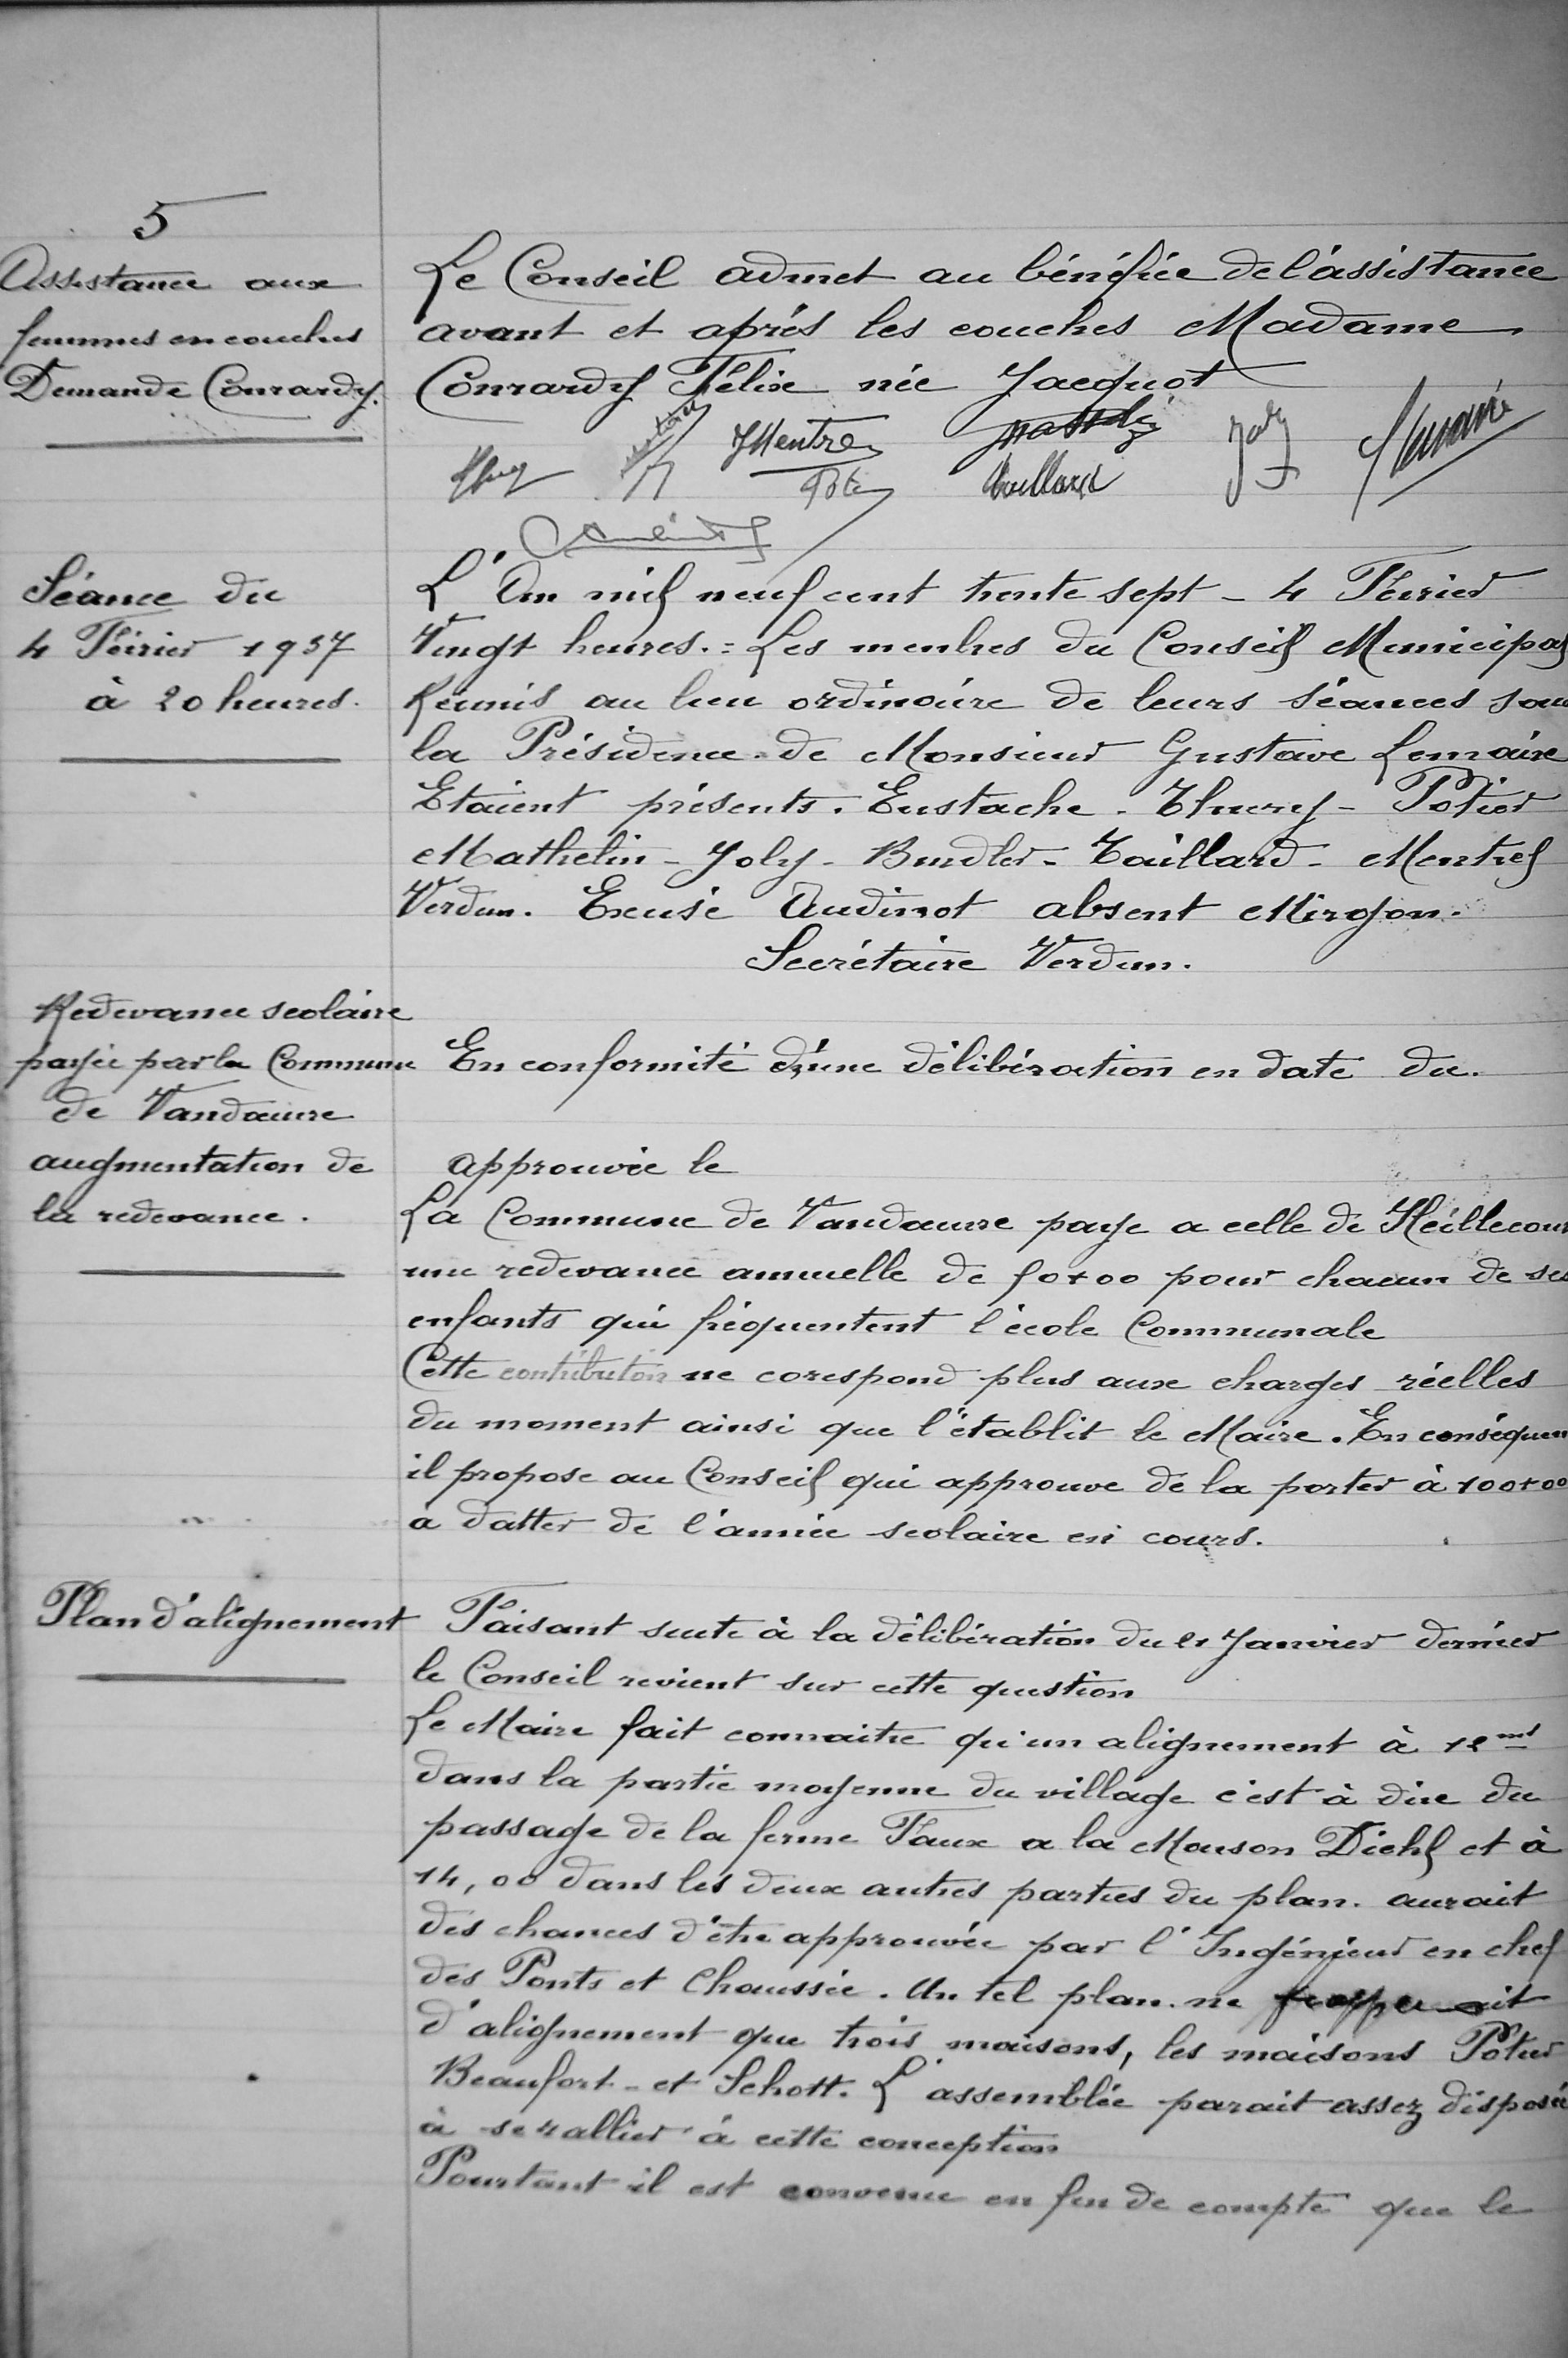 5
Assistance aux
femmes en couches
Demande Conrardy.
Le Conseil admet au bénéfice de l'assistance
avant et après les couches Madame
Conrardy Félix née Jacquot
JMentre
Taillard
Joly
Lemaire
Séance du
4 Février 1937
à 20 heures.
L'An mil neuf cent trente sept - 4 Février
Vingt heures. = Les membres du Conseil Municipal
Réunis au lieu ordinaire de leurs séances sous
la Présidence de Monsieur Gustave Lemaire
Etaient présents. Eustache - Thuery - Potier
Mathelin - Joly - Burdler - Taillard - Mentrel
Verdun. Excusé Audinot absent Mirgon.
Secrétaire Verdun.
Redevance scolaire
payée par la Commune
de Vandœuvre
augmentation de
la redevance.
En conformité d'une délibération en date du.
approuvée le
La Commune de Vandœuvre paye a celle de Heillecourt
une redevance annuelle de 50+00 pour chacun de ses
enfants qui fréquentent l'école Communale
Cette contribution ne corespond plus aux charges réelles
du moment ainsi que l'établit le Maire. En conséquen
il propose au Conseil qui approuve de la porter à 100+00
a datter de l'année scolaire en cours.
Plan d'alignement
Faisant suite à la délibération du 21 Janvier dernier
le Conseil revient sur cette question
Le Maire fait connaitre qu'un alignement à 12 mts
dans la partie moyenne du village c'est à dire du
passage de la ferme Faux a la Maison Diehl et à
14,00 dans les deux autres parties du plan. aurait
des chances d'être approuvée par l'Ingénieur en chef
des Ponts et Chaussée. Un tel plan. ne frapperait
d'alignement que trois maisons, les maisons Potier
Beaufort - et Schott. L'assemblée parait assez disposée
à se rallier à cette conception
Pourtant il est convenu en fin de compte que le